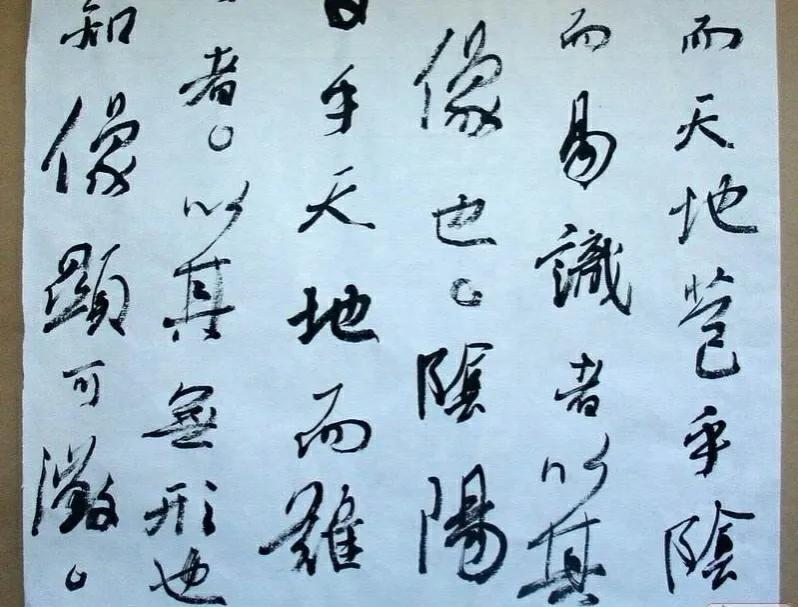 而天地苞乎陰
而易識者以其
像也。陰陽
乎天地而難
者。以其無形也
知像顯可徵。